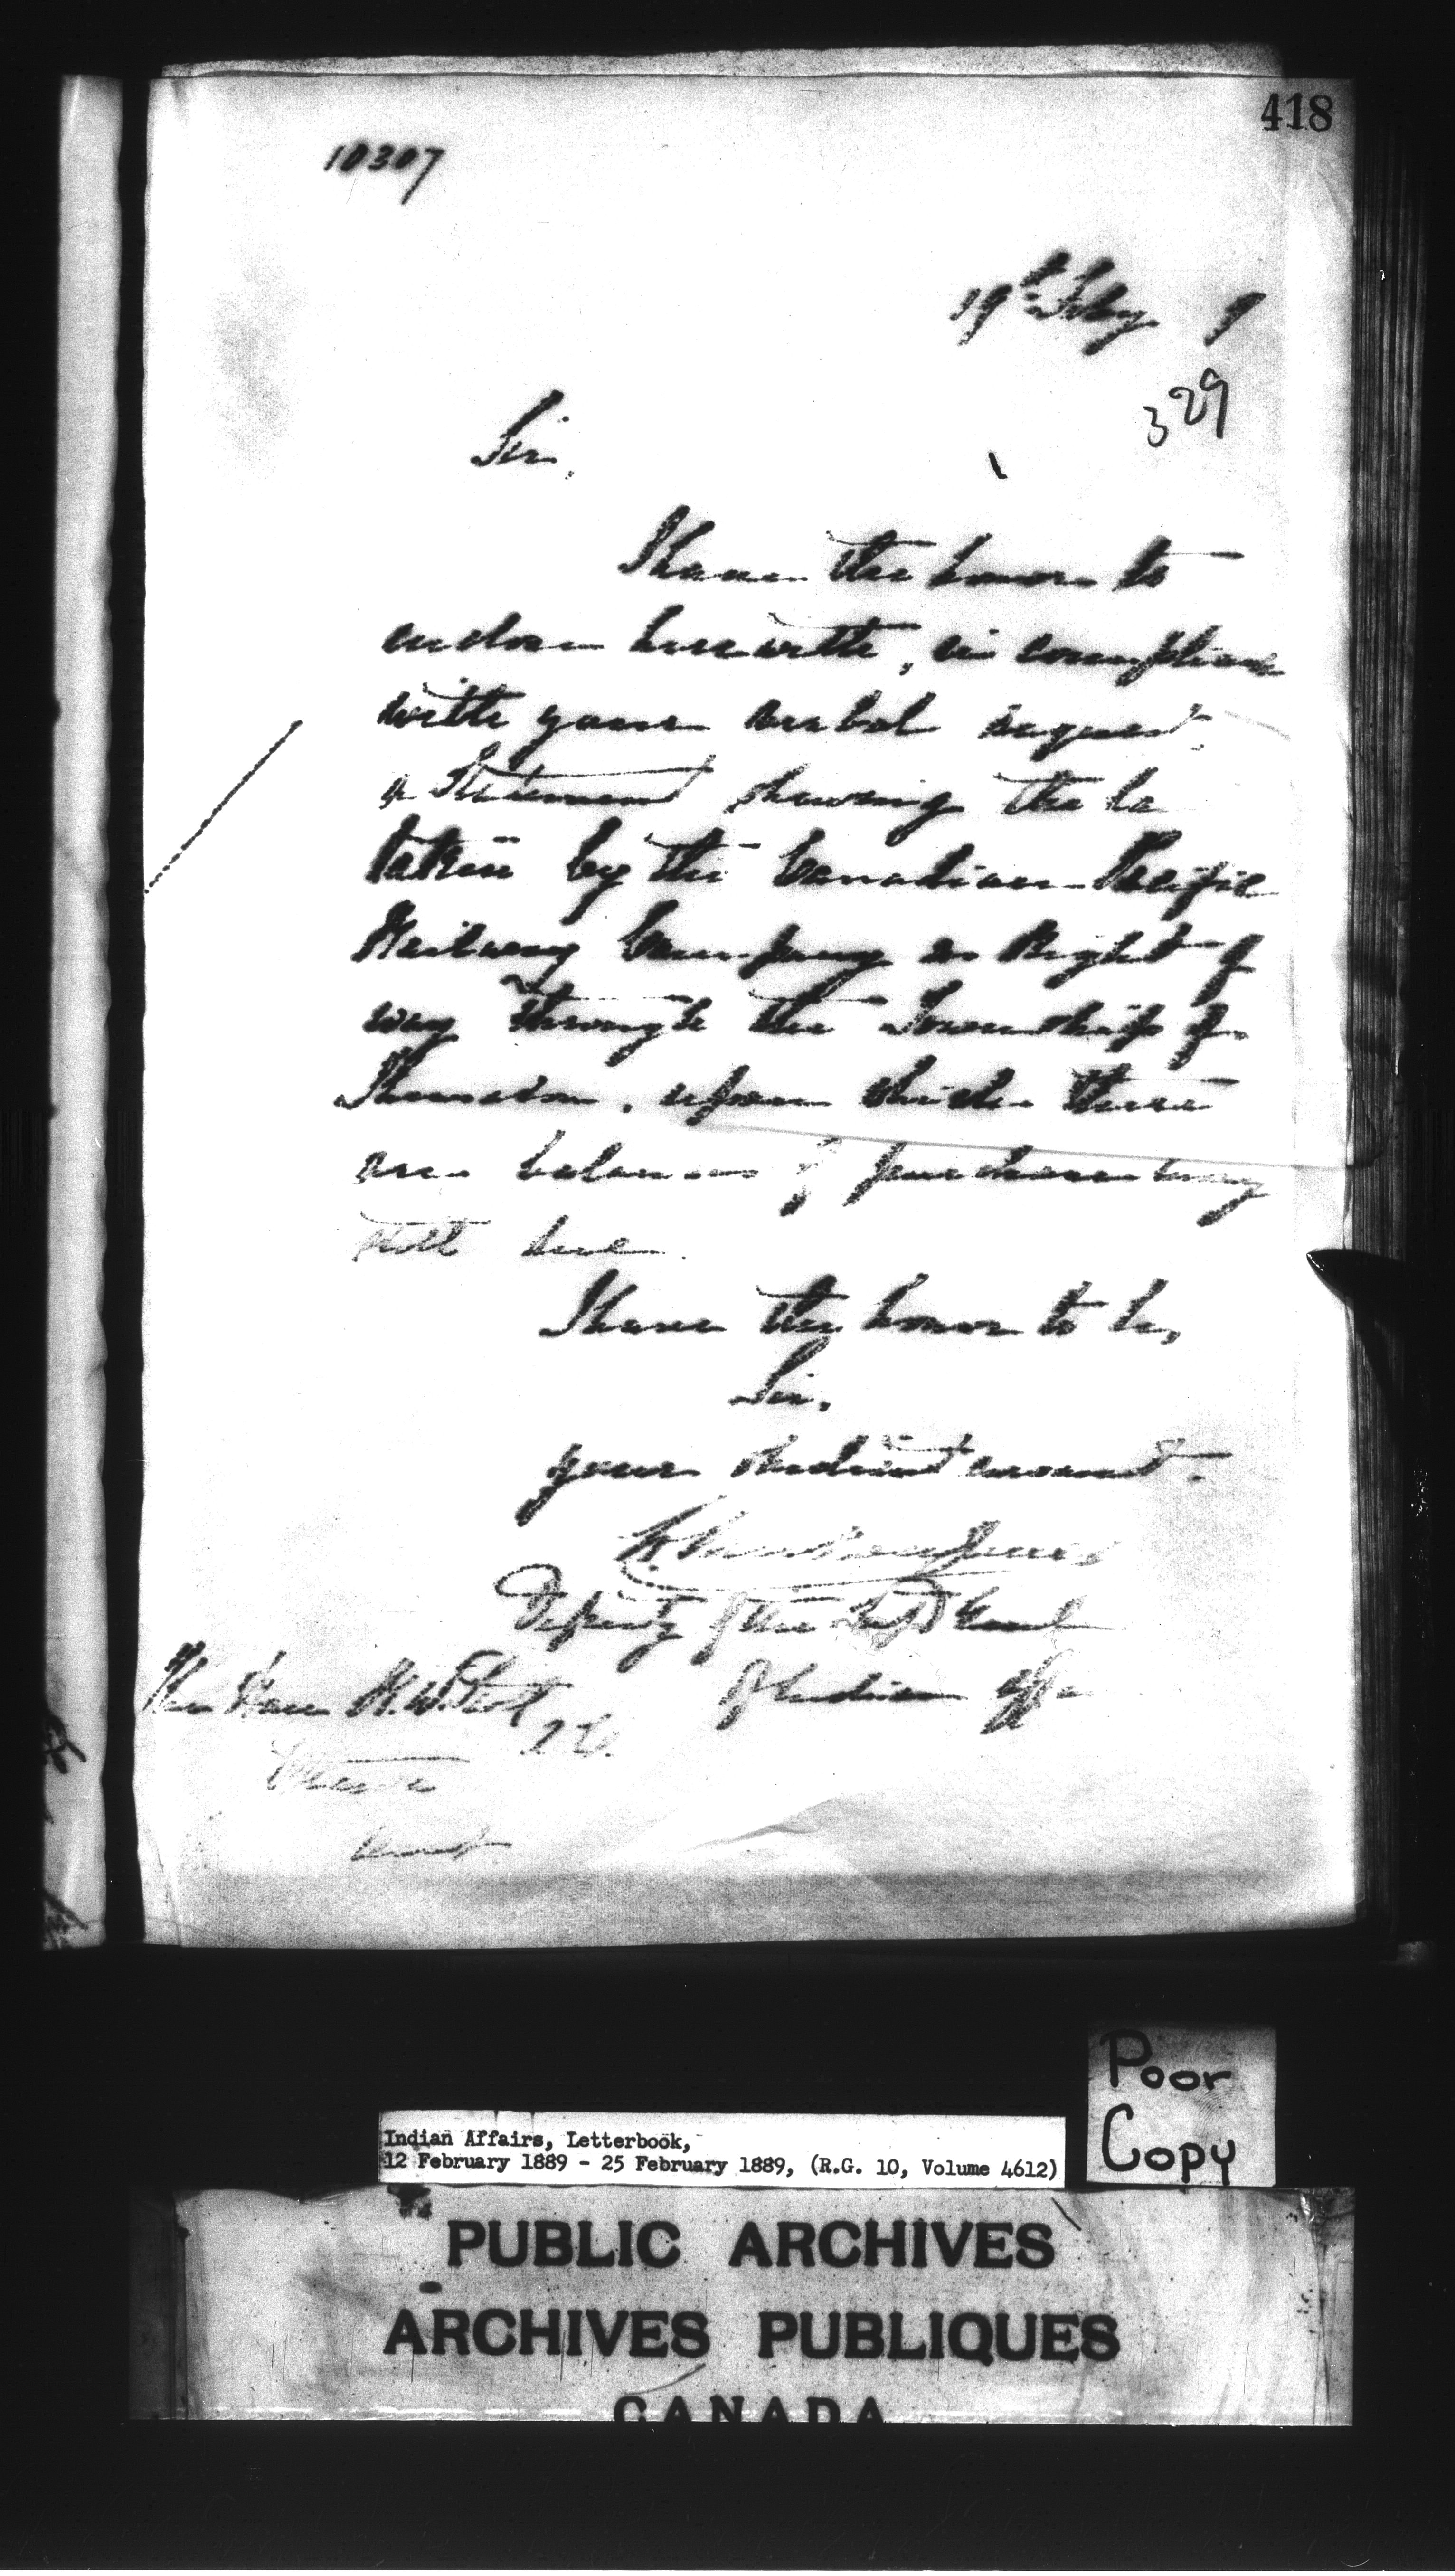 418
10307
19th Feby 9
329
Sir,
I have the honor to
enclose herewith, in compliance
with your verbal request,
a Statement showing the la
taken by the Canadian Pacific
Railway Company as Right of
way through the Township of
Thurston, upon which there
are balances of purchase money
still due.
I have the honor to be,
Sir,
Your obedient servant.
L. Vankoughnet
Deputy of the Supt Genl
of Indian Affa
The Hon R. W. Scott
Q.C.
Ottawa
Ont
Poor
Copy
Indian Affairs, Letterbook,
12 February 1889 - 25 February 1889, (R.G. 10, Volume 4612)
PUBLIC ARCHIVES
ARCHIVES PUBLIQUES
CANADA